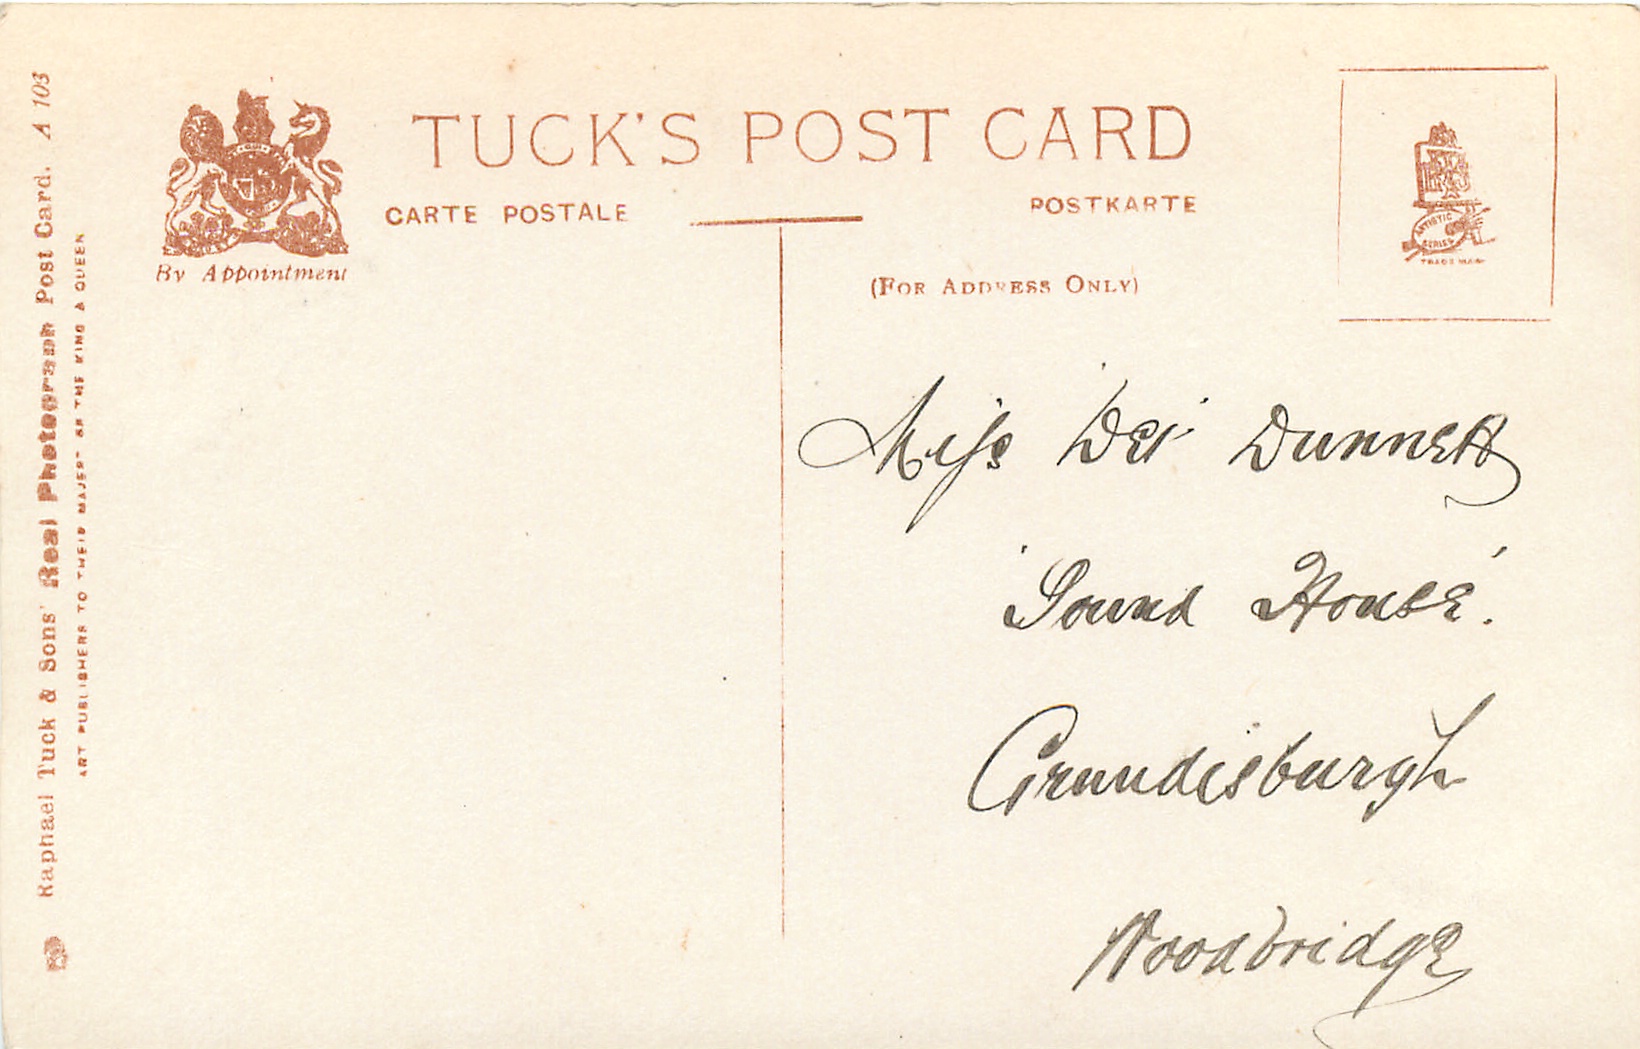 TUCK'S POST CARD
CARTE POSTALE
POSTKARTE
By Appointment
(FOR ADDRESS ONLY)
ARTISTIC
SERIES
TRADE MARK
Miss Dei Dunnett
'Sound House'.
Grundisburgh
Woodbridge
Raphael Tuck & Sons' Real Photograph Post Card. A 103
ART PUBLISHERS TO THEIR MAJESTIES THE KING & QUEEN